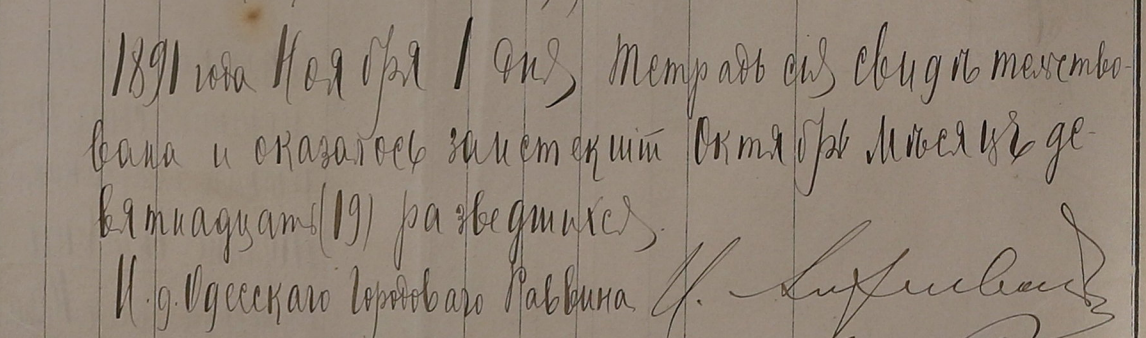 1891 года Ноября 1 дня тетрадь сія свидѣтельство-
вана и оказалось за истекшій Октябрь мѣсяцъ де-
вятнадцать (19) разведшихся.
И. д. Одесскаго Городоваго Раввина